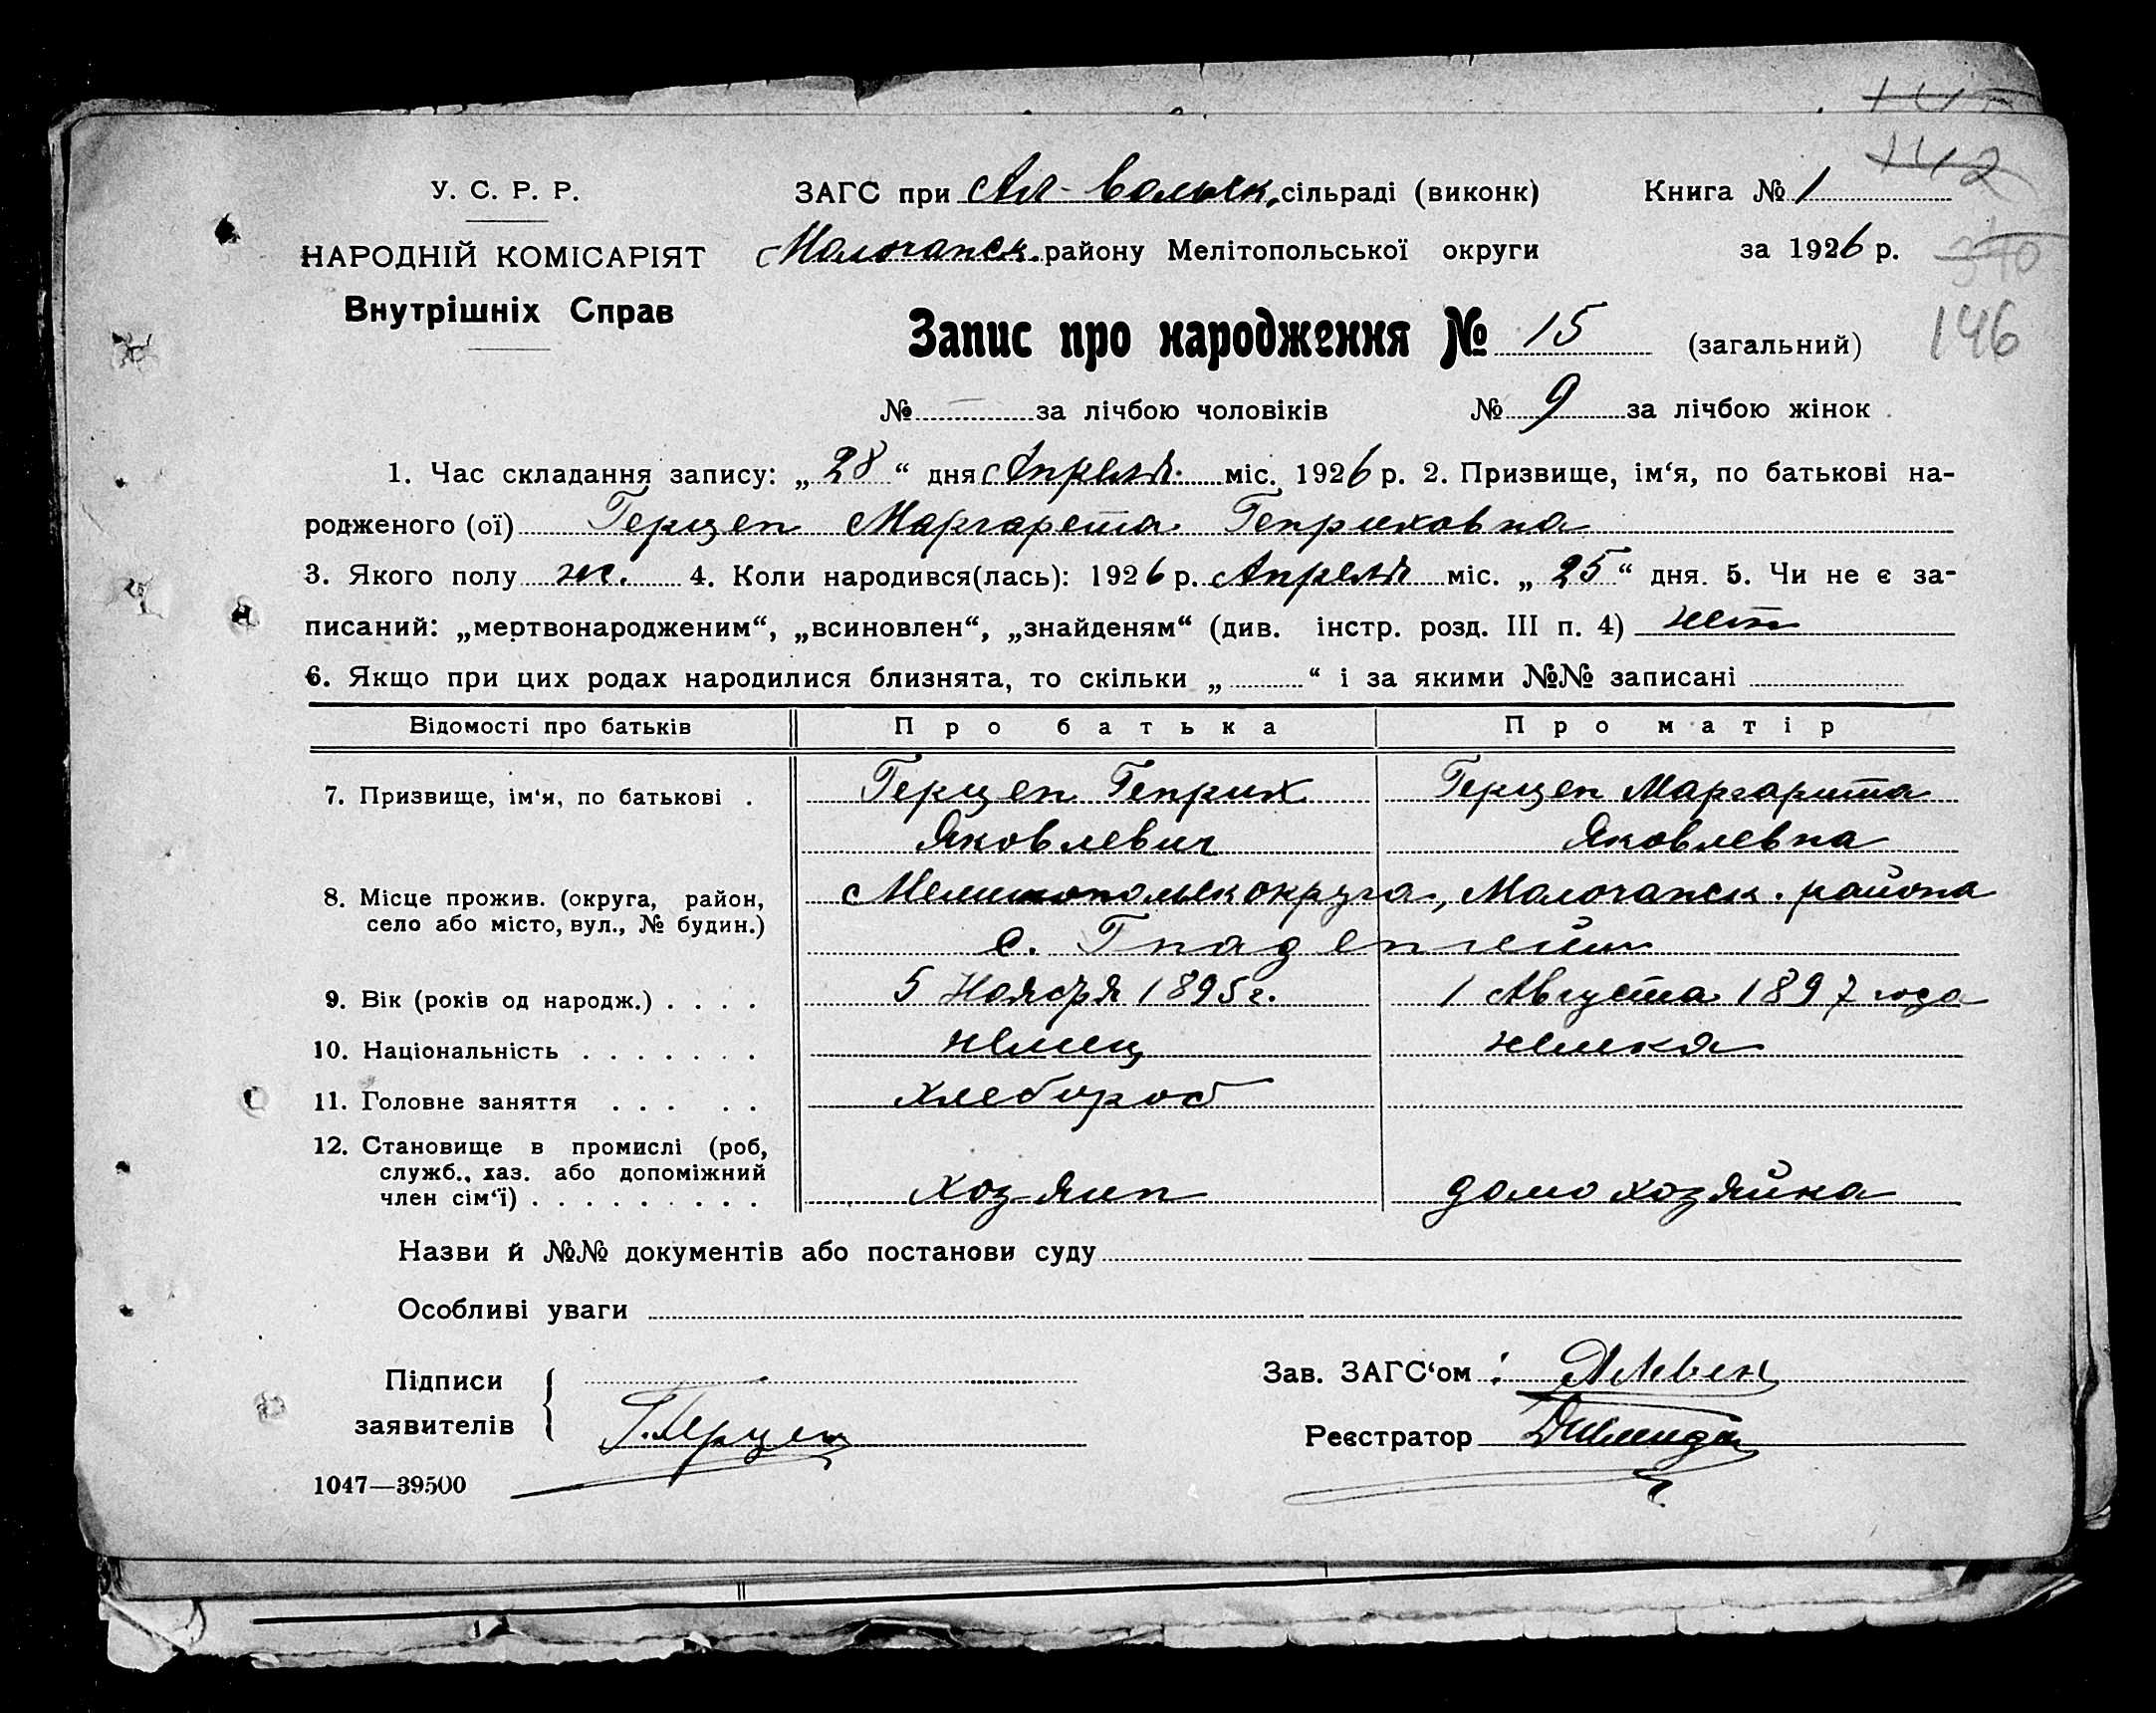 142
У. С. Р. Р. ЗАГС при Ал-вальск. сільраді (виконк) Книга № 1
НАРОДНІЙ КОМІСАРІЯТ Молочанск. району Мелітопольської округи за 1926 р.
Внутрішніх Справ
Запис про народження № 15 (загальний) 146
№ — за лічбою чоловіків № 9 за лічбою жінок
1. Час складання запису: „28“ дня Апреля міс. 1926 р. 2. Призвище, ім‘я, по батькові на-
родженого (ої) Герцен Маргарета Генриховна
3. Якого полу ж. 4. Коли народився(лась): 1926 р. Апреля міс. „25“ дня. 5. Чи не є за-
писаний: „мертвонародженим“, „всиновлен“, „знайденям“ (див. інстр. розд. III п. 4) нет
6. Якщо при цих родах народилися близнята, то скільки „ “ і за якими №№ записані
Відомості про батьків Про батька Про матір
7. Призвище, ім‘я, по батькові . Герцен Генрих Герцен Маргарита
Яковлевич Яковлевна
8. Місце прожив. (округа, район, Мелитопольск округа, Молочанск. района
село або місто, вул., № будин.) с. Гнаденгейм
9. Вік (років од народж.) . . . . 5 Ноября 1895 г. 1 Августа 1897 года
10. Національність . . . . . . . немец немка
11. Головне заняття . . . . . хлебороб
12. Становище в промислі (роб,
служб., хаз. або допоміжний
член сім‘ї) . . . . . . . . . хозяин домохозяйка
Назви й №№ документів або постанови суду
Особливі уваги
Підписи Зав. ЗАГС‘ом :
заявителів Г. Герцен Реєстратор
1047—39500